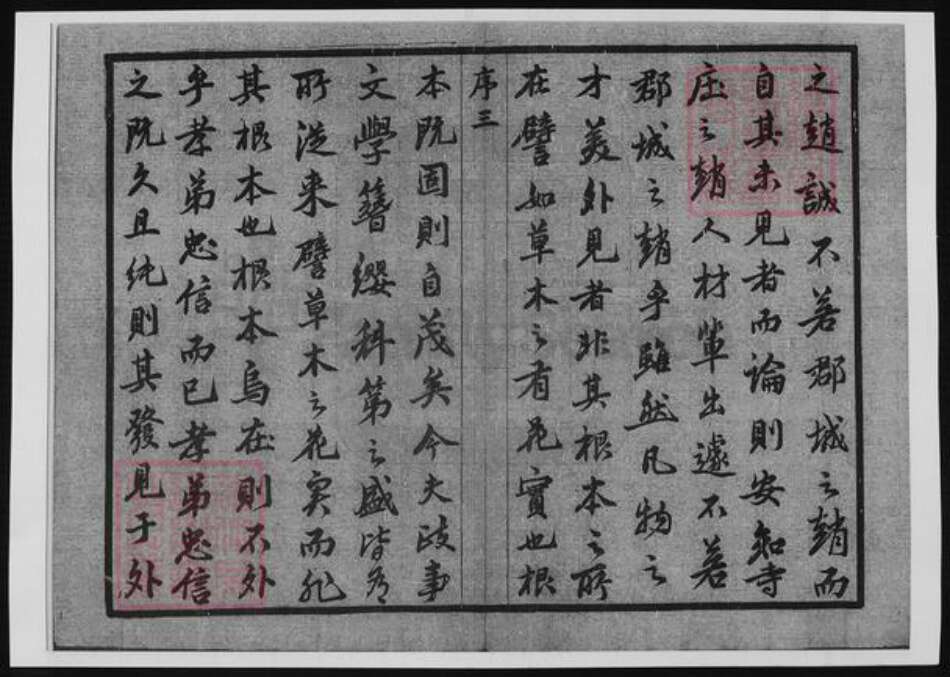 之趙誠不若郡城之趙而
自其未見者而論則安知寺
庄之趙人材輩出遽不若
郡城之趙乎雖然凡物之
才美外見者非其根本之所
在譬如草木之有花實也根
序三
本既固則自茂矣今夫政事
文學簪纓科第之盛皆有
所從来譬草木之花实而非
其根本也根本烏在則不外
乎孝弟忠信而已孝弟忠信
之既久且純則其發見于外